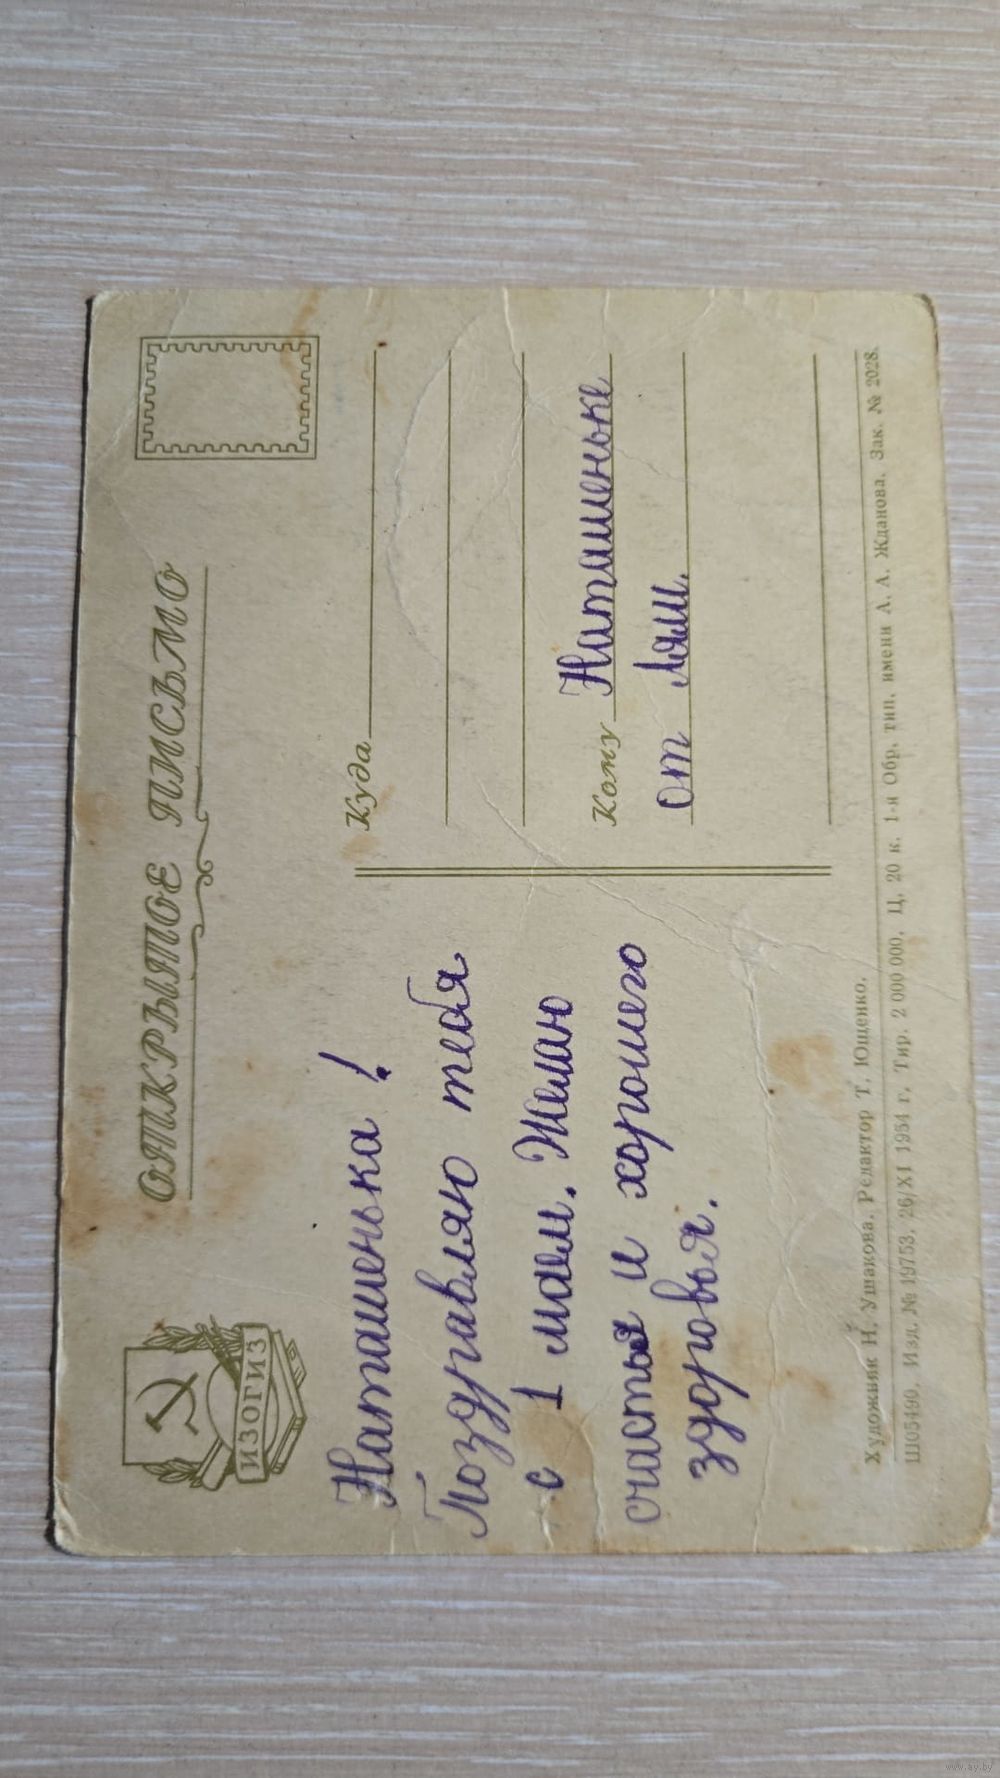 ОТКРЫТОЕ ПИСЬМО
ИЗОГИЗ
Наташенька!
Поздравляю тебя
с 1 маем. Желаю
счастья и хорошего
здоровья.
Куда
Кому Наташеньке
от Ляли.
Художник Н. Ушакова. Редактор Т. Ющенко.
Ш05490. Изд. № 19753. 26/XI 1954 г. Тир. 2 000 000. Ц. 20 к. 1-я Обр. тип. имени А. А. Жданова. Зак. № 2028.
www.ay.by